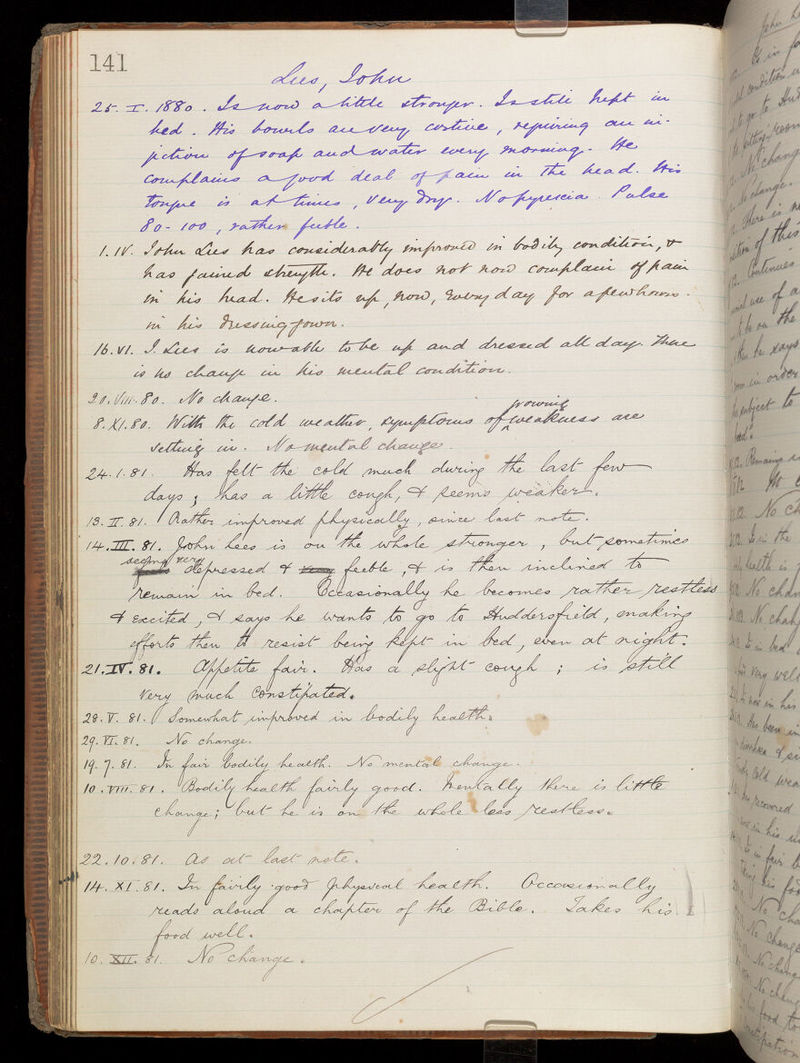 141
Lees, John
25. I. 1880. Is now a little stronger. Is still kept in
bed. His bowels are very costive, requiring an in-
jection of soap and water every morning. He
complains a good deal of pain in the head. His
tongue is at times, very dry. No pyrexia. Pulse
80-100, rather feeble.
1. IV. John Lees has considerably improved in bodily condition, &
has gained strength. He does not now complain of pain
in his head. He sits up, now, every day for a few hours
in his dressing gown.
16. VI. J. Lees is now able to be up and dressed all day. There
is no change in his mental condition.
20. VIII. 80. No change.
8. XI. 80. With the cold weather, symptoms of growing weakness are
setting in. No mental change.
24. 1. 81. Has felt the cold much during the last few
days; has a little cough, & seems weaker.
13. II. 81. Rather improved physically, since last note.
14. III. 81. John Lees is on the whole stronger, but sometimes
seems very depressed & feeble, & is then inclined to
remain in bed. Occasionally he becomes rather restless
& excited, & says he wants to go to Huddersfield, making
efforts then to resist being kept in bed, even at night.
21. IV. 81. Appetite fair. Has a slight cough; is still
very much constipated.
28. V. 81. Somewhat improved in bodily health.
29. VI. 81. No change.
19. 7. 81. In fair bodily health. No mental change.
10. VIII. 81. Bodily health fairly good. Mentally there is little
change; but he is on the whole less restless.
22. 10. 81. As at last note.
14. XI. 81. In fairly good physical health. Occasionally
reads aloud a chapter of the Bible. Takes his
food well.
10. XII. 81. No change.